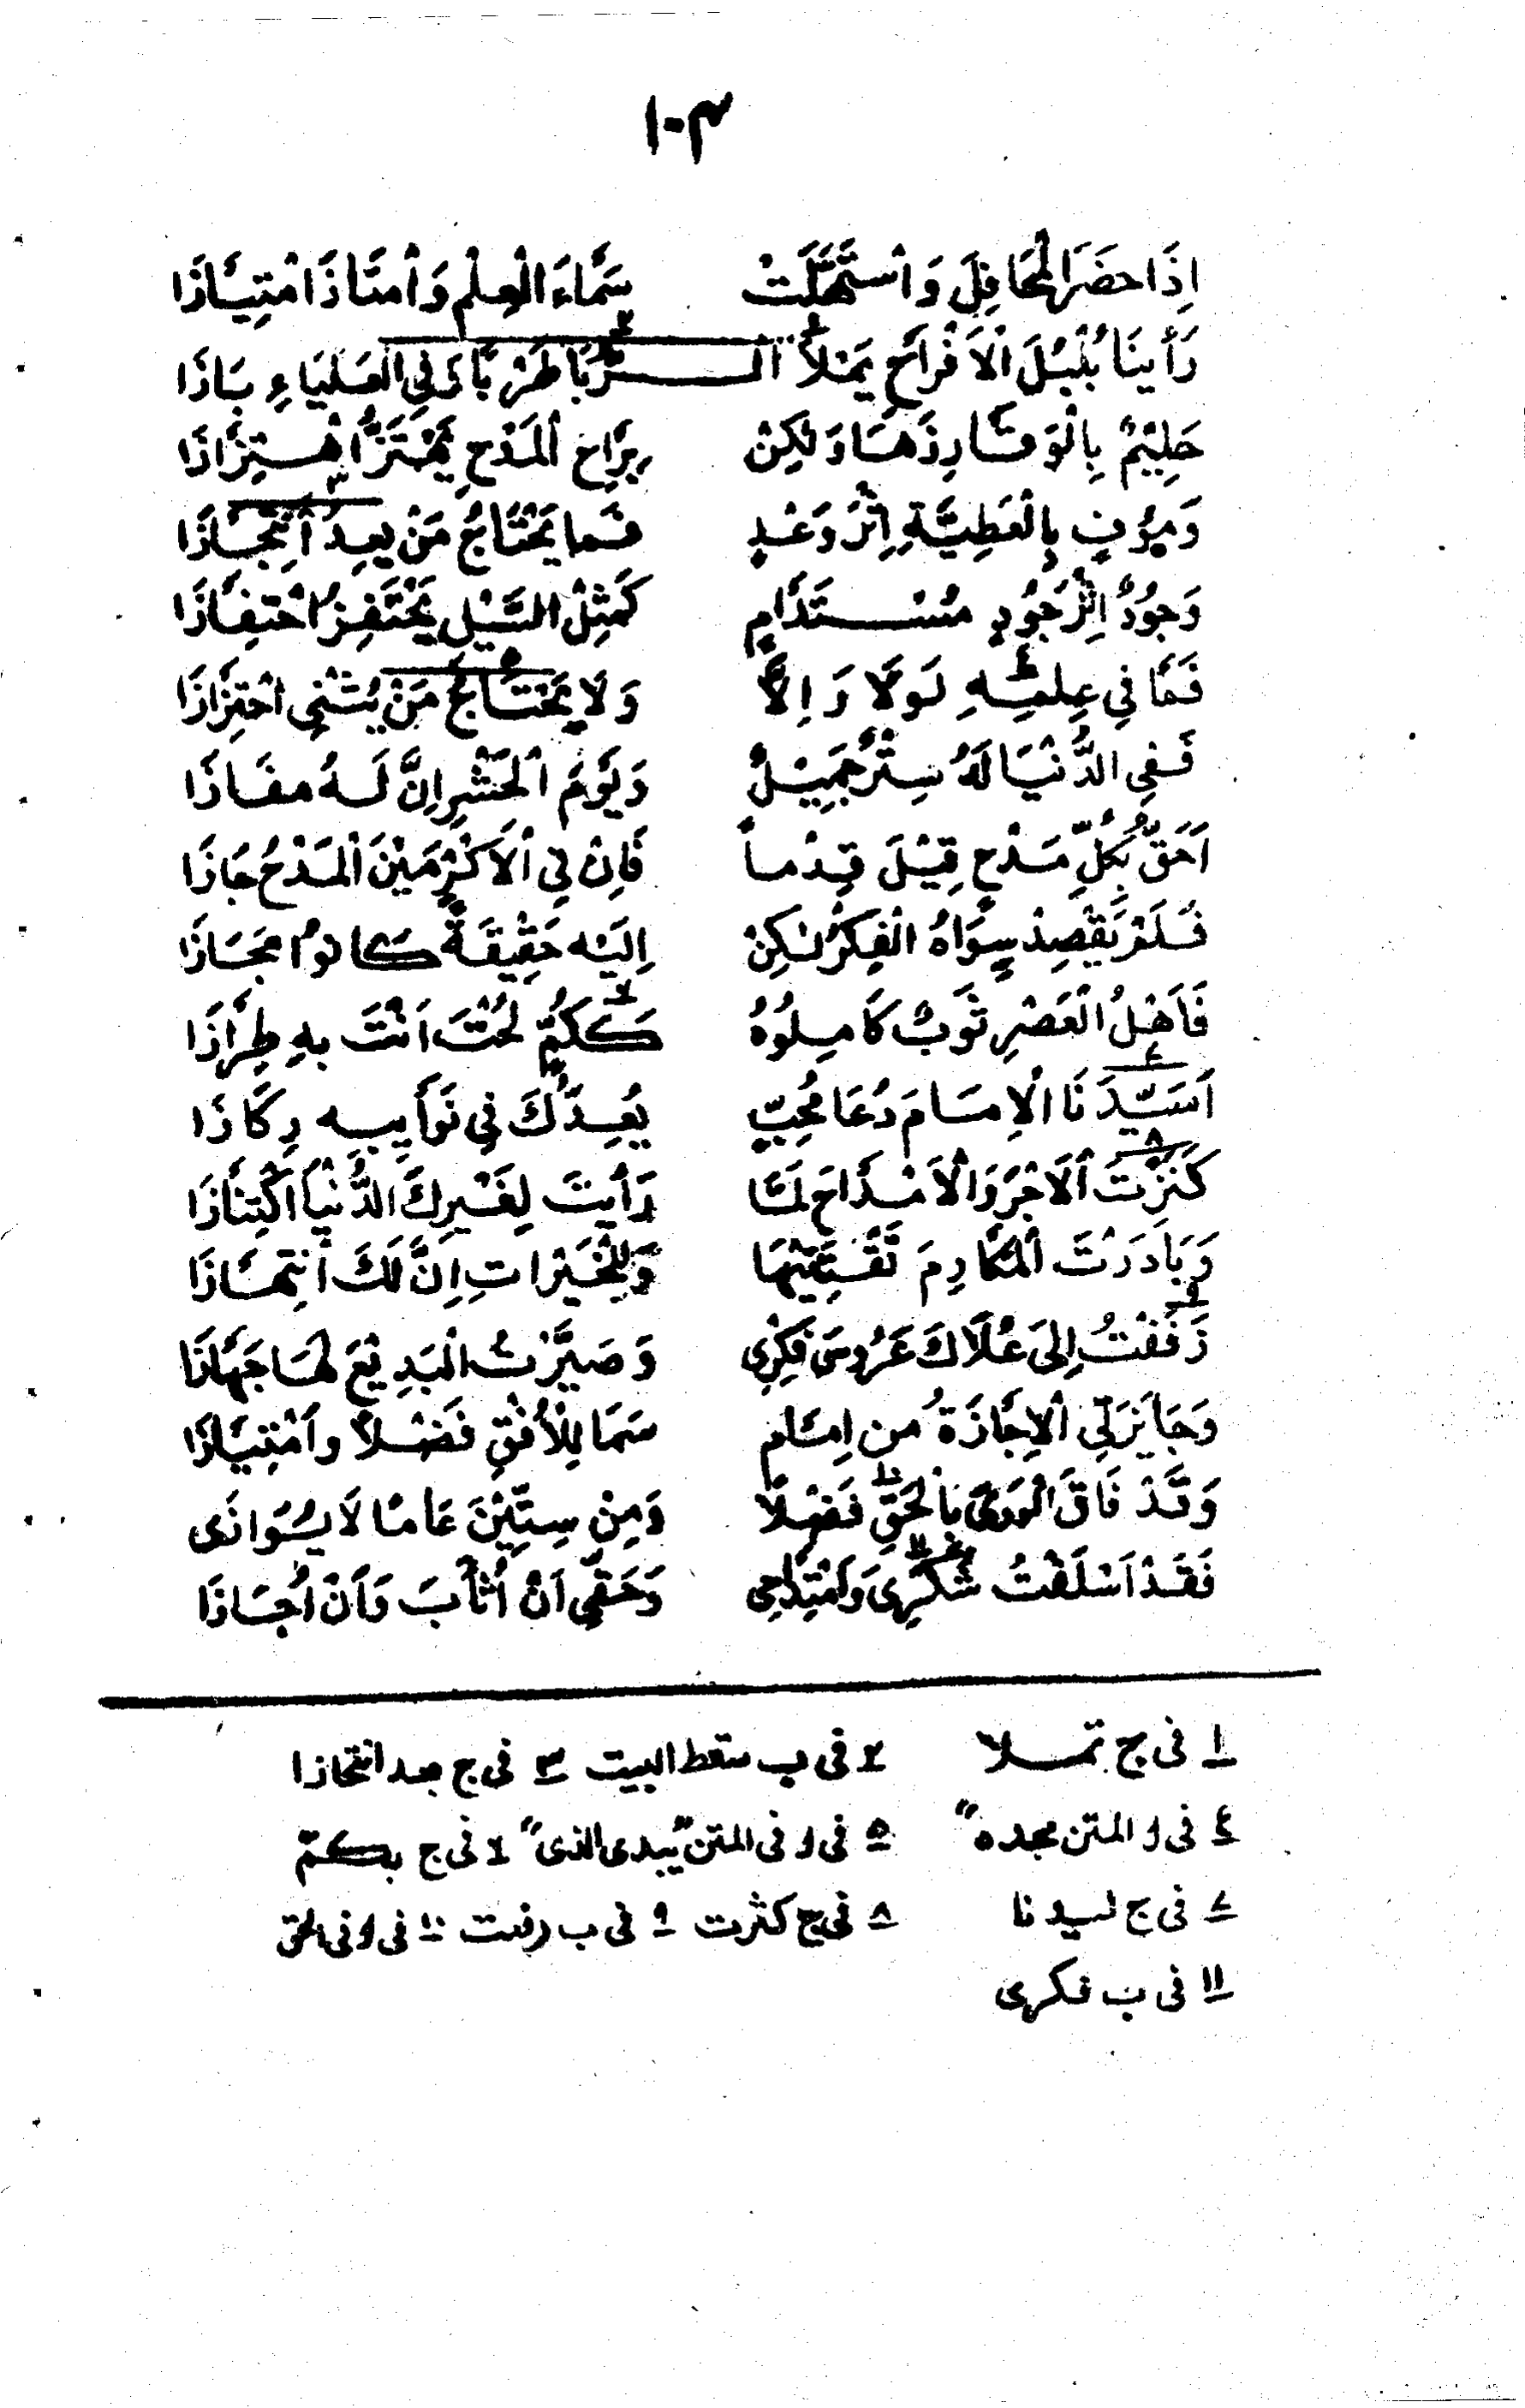 ١٠٣
اِذَا حضَرَ الْمحَافِلَ وَاْستَهَلَّتْ سَمَاءَ الْعِلْمِ وَاْمتَازَ امْتِيَازَا
رَأينَا بُلْبُلَ الْاَفْرَاحِ يَمْلَأ ١ الـرُّبَا ٢ طَرْبًا وَفِي الْعَلْيَاءِ بَازَا
حَلِيْمٌ بِالْوَقَارِ زَهَا وَلٰكِنْ بِرَاحِ الْمَدْحِ يَهْتَزُّ اهْتِزَازَا
وَيُوفِ بِالْعَطِيَّةِ اِثْرَ وَعْدٍ فَما يَحْتَاجُ مَنْ يعِدُ ٣ اَنْتِجَازَا
وَجُودٌ اِثْرَ جُودٍ مُسْتَدَامٍ كَمِثْلِ السَّيْلِ يَحْتَفِزُ احْتفِازَا
فَمَا فِي عِلْمِهِ ٤ لَولَا وَاِلَّا وَلَا يَحْتَاجُ ٥ مَنْ يُثْنِي احْتِزَازَا
فَفِي الدُّنْيَا لَهُ سِتْرٌ جَمِيْلٌ وَيَوْمَ الْحَشْرِ اِنَّ لَهُ مفَازَا
اَحَقّ بِكُلِّ مَدْحٍ قِيْلَ قِدْماً فَاِنْ فِي الْاَكْرَمِيْنَ الْمَدْحُ جَازَا
فَلَمْ يَقْصِدْ سِوَاهُ الْفِكْرُ لٰكِنْ اِلَيْه حَقِيْقَةً كانوْا مَجَازَا
فَاَهْلُ الْعَصْرِ ثَوْبٌ كَامِلُوْهُ كَكُمٍّ ٦ لُحْتَ اَنْتَ بهِ طِرَازَا
اَسَيِّدَنَا ٧ الْاِمَامَ دُعَا مُحِبٍّ يُعِدُّكَ فِي نَوَأيِبِهِ رِكَازَا
كَنَزْتَ ٨ الْاَجْرَ وَالْاَمْدَاحَ لَمَّا رَأيتَ لِغَيْرِكَ الدُّنْيَا اكْتِنَازَا
وَبَادَرْتَ الْمَكَارِمَ تَقْتَنِيْهَا وَلِلْخَيْرَاتِ اِنَّ لَكَ اَنتِهَازَا
زَفَفْتُ ٩ اِلَى عُلَاكَ عَرُوسَ فِكْرِي وَصَيَّرْتُ الْبَدِيْعَ لَهَا جَهَازَا
وَجَايَزْ لِي الْاِجَازَةُ من اِمَامٍ سَمَا لِلْأُفْقِ فَضْلاً وامْتِيَازَا
وَقَدْ فَاقَ الْوَرَى بِالْحَقِّ ١٠ فَضْلًا وَمِنْ سِتِّيْنَ عَامًا لَا يُسَوَازَى
فَقَدْ اَسْلَفْتُ شُكْرِيَ ١١ وَامْتِدَاحِي وَحَقِّي اَنْ اُثَأبَ وَاَنْ اُجَازَا
١ فى ج تمـلا ٢ فى ب سقط البيت ٣ فى ج بعد انتخازا
٤ فى ا المتن مجده" ٥ فى ا فى المتن "يبدى الذى" ٦ فى ج بكمّ
٧ فى ج لسيدنا ٨ فى ج كثرت ٩ فى ب رفعت ١٠ فى ا فى الحق
١١ فى ب فكرى